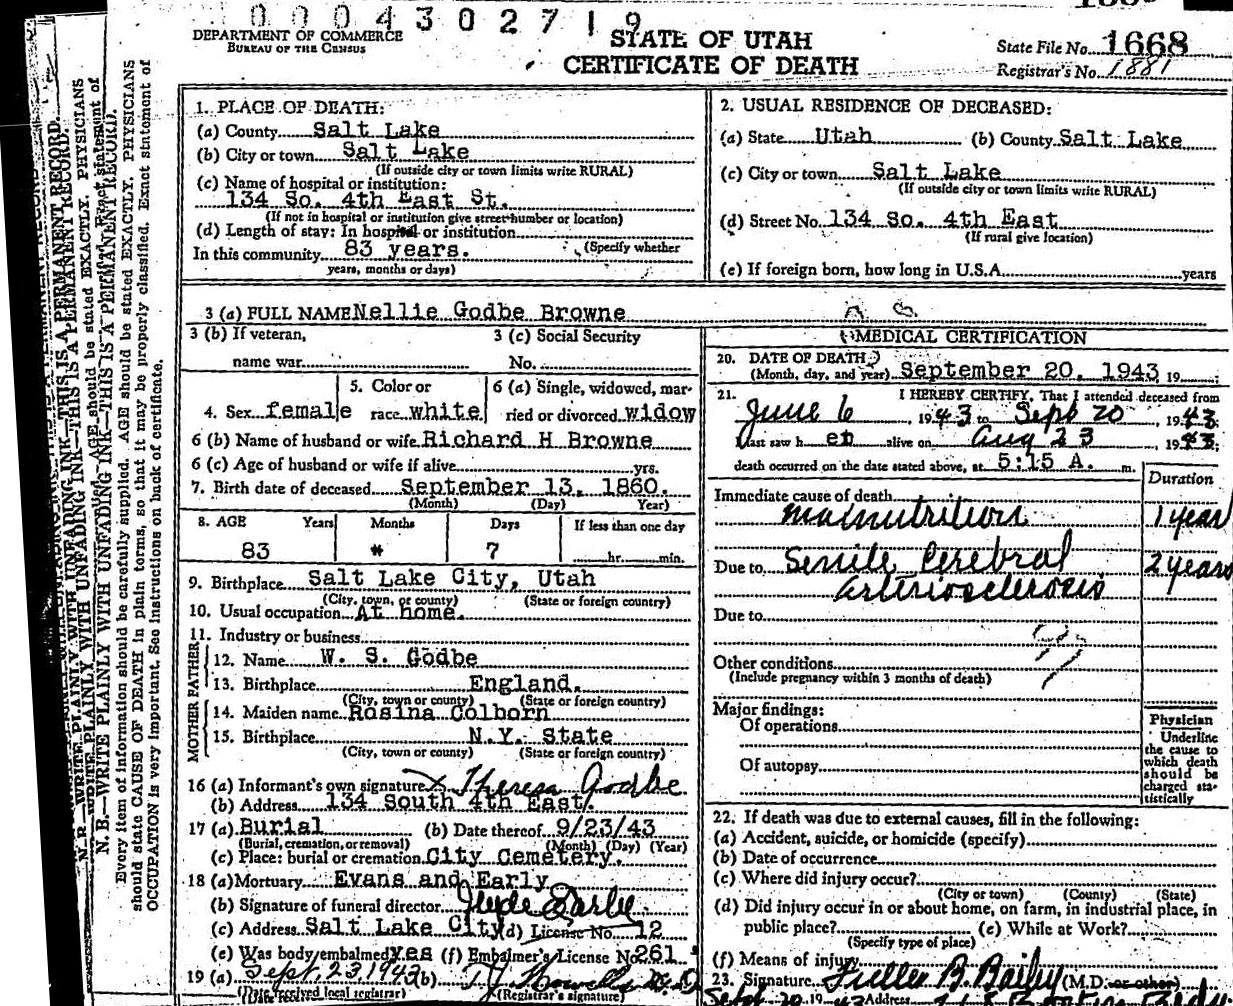 0004302719
DEPARTMENT OF COMMERCE
BUREAU OF THE CENSUS
STATE OF UTAH
CERTIFICATE OF DEATH
State File No. 1668
Registrar's No. 1881
N. B.—WRITE PLAINLY WITH UNFADING INK—THIS IS A PERMANENT RECORD.
Every item of information should be carefully supplied. AGE should be stated EXACTLY. PHYSICIANS
should state CAUSE OF DEATH in plain terms, so that it may be properly classified. Exact statement of
OCCUPATION is very important. See instructions on back of certificate.
1. PLACE OF DEATH:
(a) County Salt Lake
(b) City or town Salt Lake
(If outside city or town limits write RURAL)
(c) Name of hospital or institution:
134 So. 4th East St.
(If not in hospital or institution give street number or location)
(d) Length of stay: In hospital or institution
(Specify whether
In this community 83 years.
years, months or days)
2. USUAL RESIDENCE OF DECEASED:
(a) State Utah (b) County Salt Lake
(c) City or town Salt Lake
(If outside city or town limits write RURAL)
(d) Street No. 134 So. 4th East
(If rural give location)
(e) If foreign born, how long in U.S.A. years
3 (a) FULL NAME Nellie Godbe Browne
3 (b) If veteran, 3 (c) Social Security
name war No.
4. Sex female 5. Color or race white 6 (a) Single, widowed, married or divorced widow
6 (b) Name of husband or wife Richard H Browne
6 (c) Age of husband or wife if alive yrs.
7. Birth date of deceased September 13, 1860.
(Month) (Day) Year)
8. AGE Years Months Days If less than one day
83 * 7 hr. min.
9. Birthplace Salt Lake City, Utah
(City, town, or county) (State or foreign country)
10. Usual occupation At home.
11. Industry or business
FATHER
12. Name W. S. Godbe
13. Birthplace England.
(City, town or county) (State or foreign country)
MOTHER
14. Maiden name Rosina Colborn
15. Birthplace N.Y. State
(City, town or county) (State or foreign country)
16 (a) Informant's own signature X Theresa Godbe
(b) Address 134 South 4th East.
17 (a) Burial (b) Date thereof 9/23/43
(Burial, cremation, or removal) (Month) (Day) (Year)
(c) Place: burial or cremation City Cemetery.
18 (a) Mortuary Evans and Early
(b) Signature of funeral director
(c) Address Salt Lake City (d) License No. 12
(e) Was body embalmed yes (f) Embalmer's License No 261
19 (a) Sept. 23, 1943 (b)
(Date received local registrar) (Registrar's signature)
MEDICAL CERTIFICATION
20. DATE OF DEATH
(Month, day, and year) September 20, 1943 19
21. I HEREBY CERTIFY, That I attended deceased from
June 6, 1943 to Sept 20, 1943
last saw her alive on Aug 23 1943;
death occurred on the date stated above, at 5:15 A. m.
Duration
Immediate cause of death
malnutrition 1 year
Due to Senile Cerebral 2 years
arteriosclerosis
Due to
Other conditions
(Include pregnancy within 3 months of death)
Major findings:
Of operations
Of autopsy
Physician
Underline
the cause to
which death
should be
charged sta-
tistically
22. If death was due to external causes, fill in the following:
(a) Accident, suicide, or homicide (specify)
(b) Date of occurrence
(c) Where did injury occur?
(City or town) (County) (State)
(d) Did injury occur in or about home, on farm, in industrial place, in
public place? (e) While at Work?
(Specify type of place)
(f) Means of injury
23. Signature Fuller B. Bailey (M.D. or other)
Sept 20 1943 Address